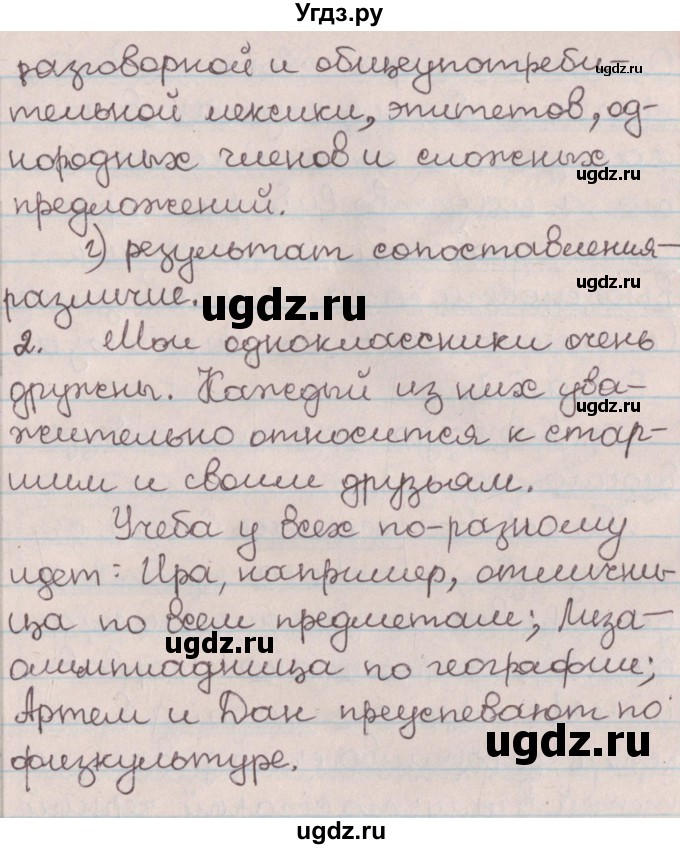 Угдз.ру
разговорной и общеупотреби-
ugdz.ru
тельной лексики, эпитетов, од-
нородных членов и сложных
ugdz.ru
предложений.
г) результат сопоставления-
различие.
ugdz.ru
2. Мои одноклассники очень
дружны. Каждый из них ува-
ugdz.ru
жительно относится к стар-
шим и своим друзьям.
Учеба у всех по-разному
идет: Ира, например, отлични-
ца по всем предметам; Лиза-
ugdz.ru
олимпиадница по географии;
Артем и Дан преуспевают по
ugdz.ru
физкультуре.
ugdz.ru